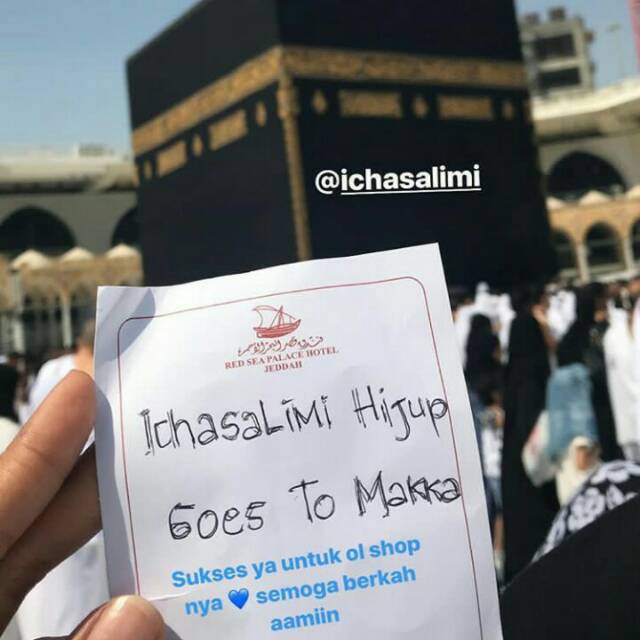 @ichasalimi
فندق قصر البحر الأحمر
RED SEA PALACE HOTEL
JEDDAH
IchasaLiMi HiJup
Goes To Makka
Sukses ya untuk ol shop
nya 💙 semoga berkah
aamiin